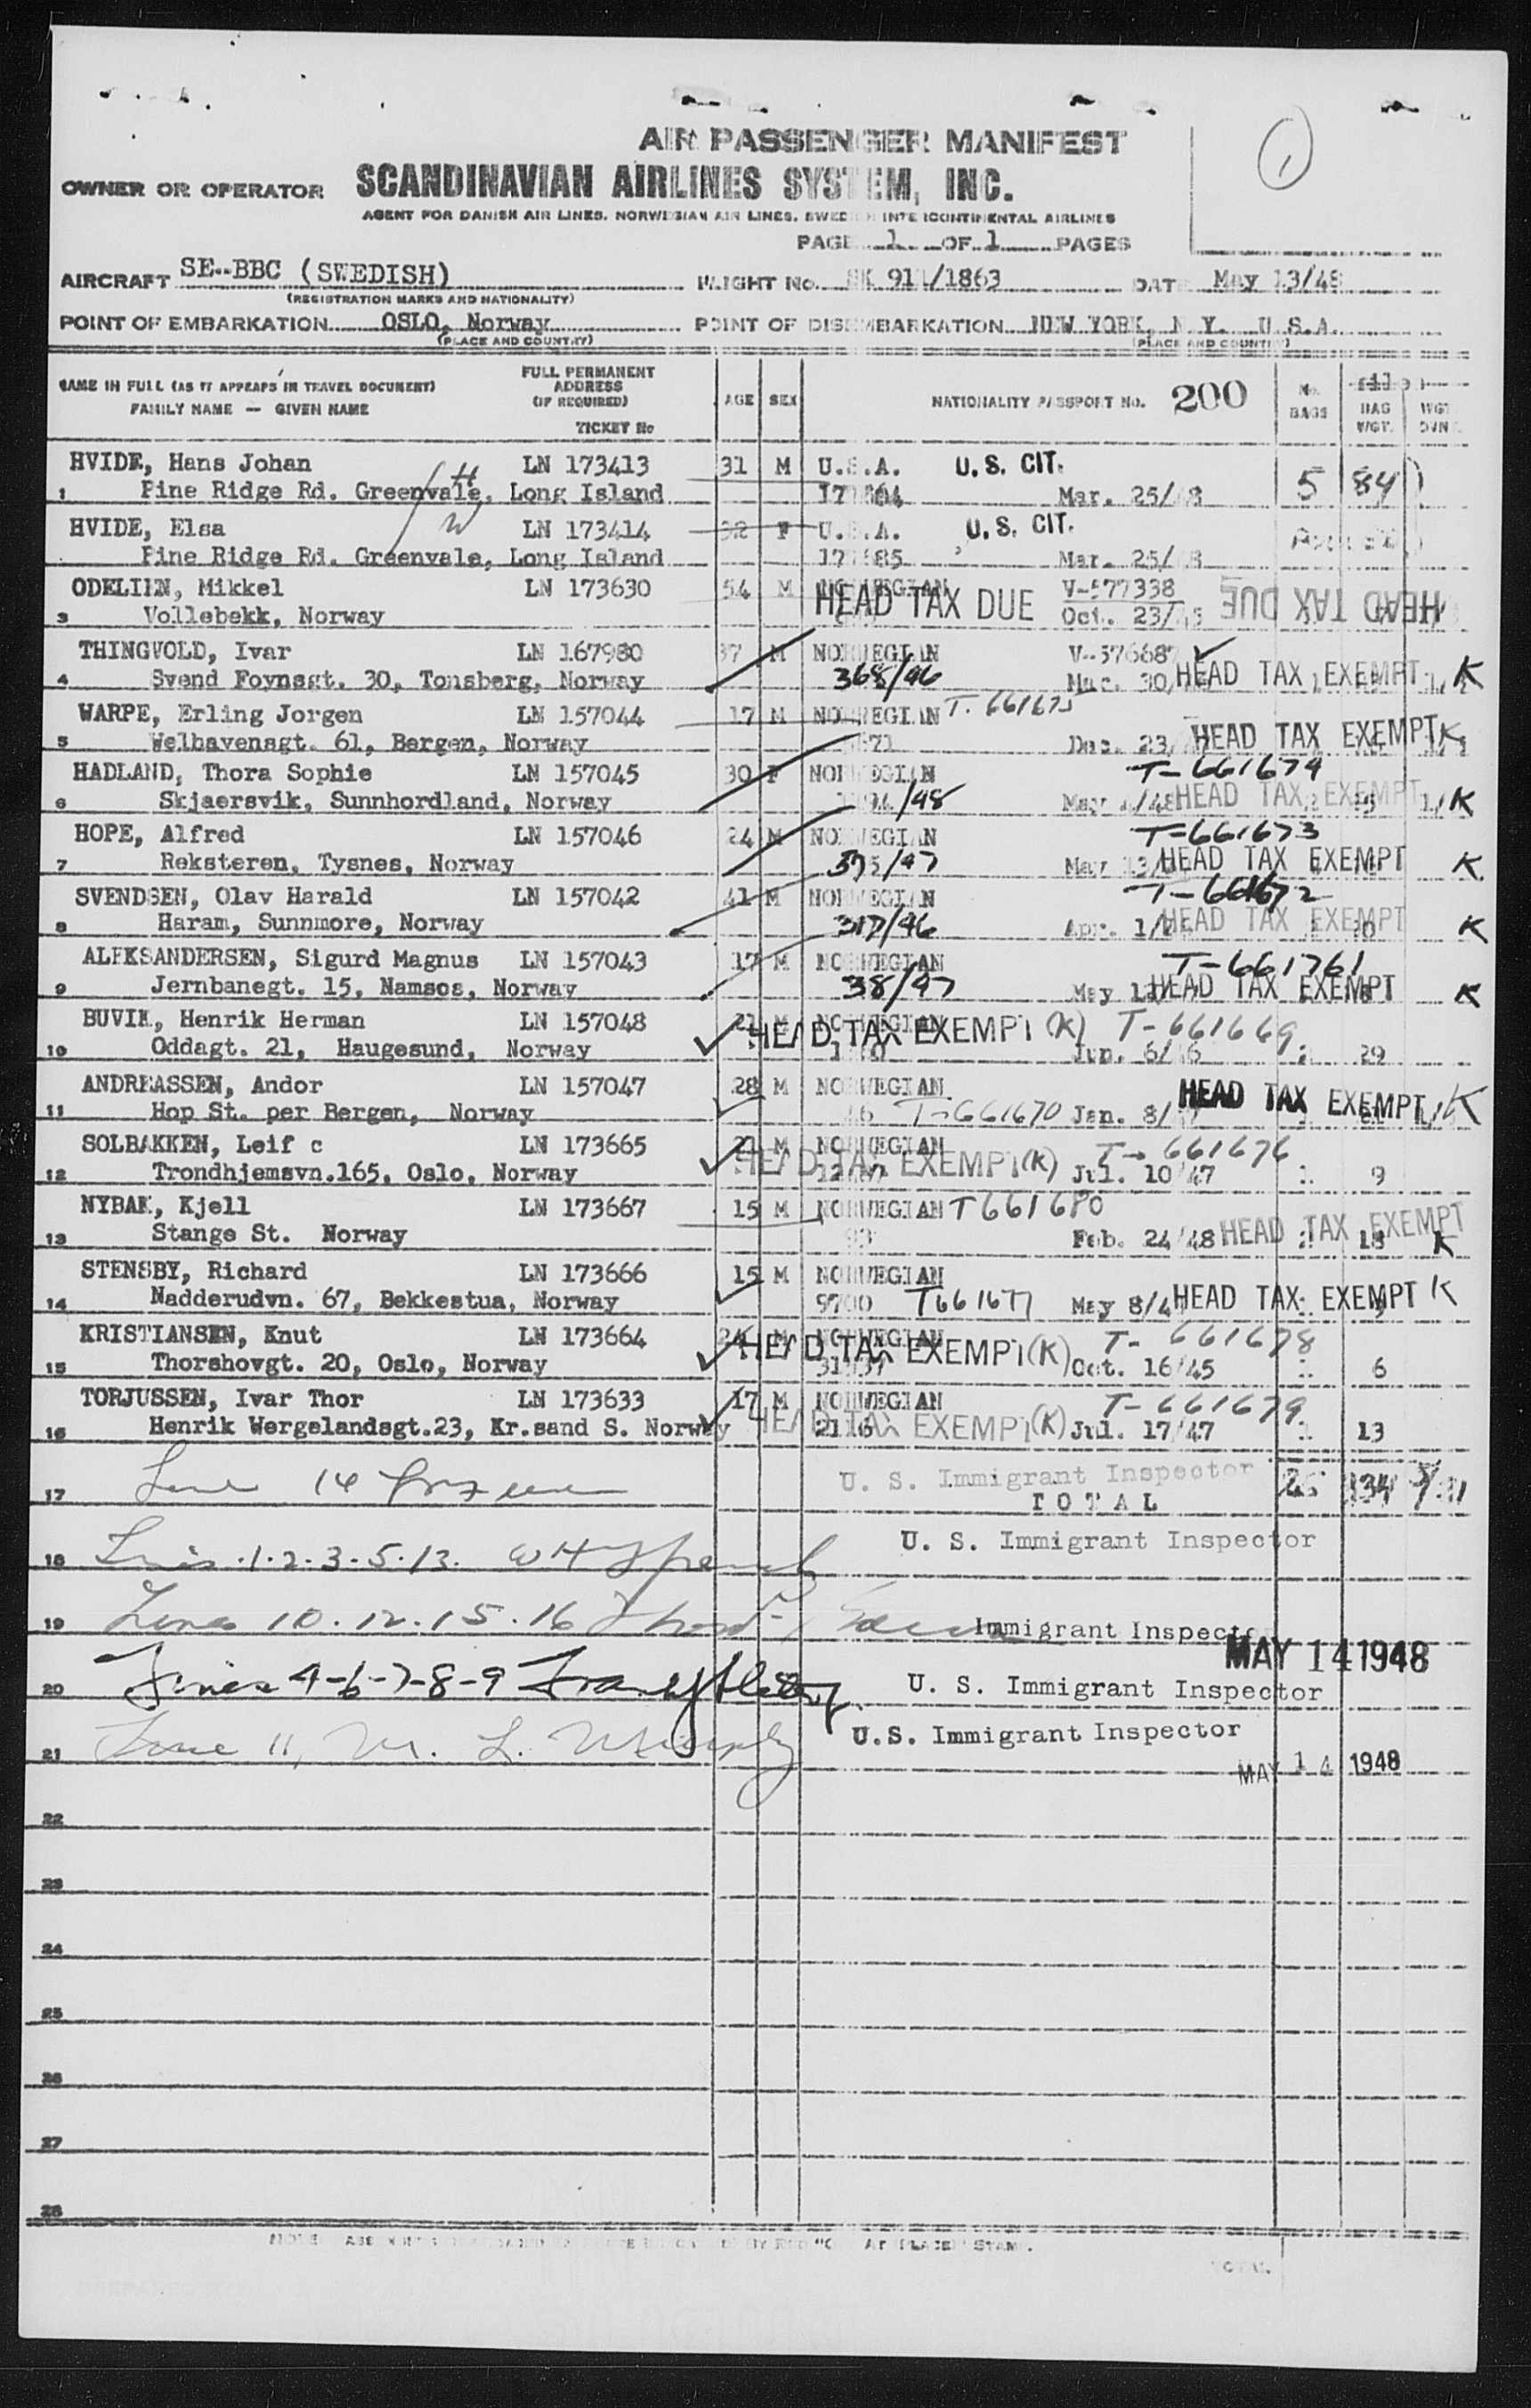 1
AIR PASSENGER MANIFEST
OWNER OR OPERATOR SCANDINAVIAN AIRLINES SYSTEM, INC.
AGENT FOR DANISH AIR LINES, NORWEGIAN AIR LINES, SWEDISH INTERCONTINENTAL AIRLINES
PAGE 1 OF 1 PAGES
AIRCRAFT SE-BBC (SWEDISH) FLIGHT No. SK 911/1863 DATE May 13/48
(REGISTRATION MARKS AND NATIONALITY)
POINT OF EMBARKATION OSLO, Norway POINT OF DISEMBARKATION NEW YORK, N.Y. U.S.A.
(PLACE AND COUNTRY) (PLACE AND COUNTRY)
NAME IN FULL (AS IT APPEARS IN TRAVEL DOCUMENT) FULL PERMANENT ADDRESS (IF REQUIRED) AGE SEX NATIONALITY PASSPORT No. 200 No. BAGS BAG WGT.
FAMILY NAME — GIVEN NAME TICKET No
HVIDE, Hans Johan LN 173413 31 M U.S.A. U.S. CIT.
1 Pine Ridge Rd. Greenvale, Long Island Mar. 25/ 5 84
HVIDE, Elsa LN 173414 F U.S.A. U.S. CIT.
Pine Ridge Rd. Greenvale, Long Island Mar. 25/
ODELIEN, Mikkel LN 173630 54 M NORWEGIAN V-577338
3 Vollebekk, Norway HEAD TAX DUE Oct. 23/ HEAD TAX DUE
THINGVOLD, Ivar LN 167980 37 M NORWEGIAN V-576687
4 Svend Foynsgt. 30, Tonsberg, Norway 368/46 30, HEAD TAX EXEMPT K
WARPE, Erling Jorgen LN 157044 17 M NORWEGIAN T-661675
5 Welhavensgt. 61, Bergen, Norway Dec. 23, HEAD TAX EXEMPT K
HADLAND, Thora Sophie LN 157045 30 F NORWEGIAN T-661674
6 Skjaersvik, Sunnhordland, Norway /48 May /48 HEAD TAX EXEMPT K
HOPE, Alfred LN 157046 24 M NORWEGIAN T-661673
7 Reksteren, Tysnes, Norway /47 May HEAD TAX EXEMPT K
SVENDSEN, Olav Harald LN 157042 41 M NORWEGIAN T-661672
8 Haram, Sunnmore, Norway 317/46 Apr. 1/ HEAD TAX EXEMPT K
ALEKSANDERSEN, Sigurd Magnus LN 157043 17 M NORWEGIAN T-661761
9 Jernbanegt. 15, Namsos, Norway 38/47 May HEAD TAX EXEMPT K
BUVIK, Henrik Herman LN 157048 21 M NORWEGIAN HEAD TAX EXEMPT (K) T-661669
10 Oddagt. 21, Haugesund, Norway Jun. 6/ 29
ANDREASSEN, Andor LN 157047 28 M NORWEGIAN HEAD TAX EXEMPT K
11 Hop St. per Bergen, Norway T-661670 Jan. 8/
SOLBAKKEN, Leif c LN 173665 M NORWEGIAN T-661676
12 Trondhjemsvn.165, Oslo, Norway HEAD TAX EXEMPT (K) Jul. 10/47 9
NYBAK, Kjell LN 173667 15 M NORWEGIAN T661680
13 Stange St. Norway Feb. 24/48 HEAD TAX EXEMPT K
STENSBY, Richard LN 173666 15 M NORWEGIAN
14 Nadderudvn. 67, Bekkestua, Norway 9700 T661677 May 8/4 HEAD TAX EXEMPT K
KRISTIANSEN, Knut LN 173664 M NORWEGIAN T-661678
15 Thorshovgt. 20, Oslo, Norway HEAD TAX EXEMPT (K) Oct. 16/45 6
TORJUSSEN, Ivar Thor LN 173633 17 M NORWEGIAN T-661679
16 Henrik Wergelandsgt.23, Kr.sand S. Norway HEAD TAX EXEMPT (K) Jul. 17/47 13
17 Line 14 U. S. Immigrant Inspector
TOTAL
18 Lines 1-2-3-5-13. U. S. Immigrant Inspector
19 Lines 10-12-15-16 Immigrant Inspector
MAY 14 1948
20 Lines 4-6-7-8-9 U. S. Immigrant Inspector
21 Line 11, M. L. Murphy U.S. Immigrant Inspector
MAY 14 1948
22
23
24
25
26
27
28